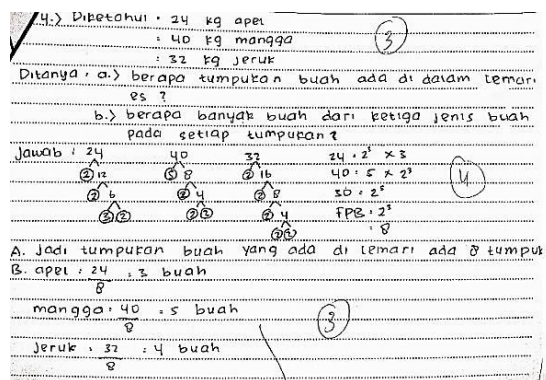 4.) Diketahui : 24 kg apel
: 40 kg mangga
3
: 32 kg jeruk
Ditanya : a.) berapa tumpukan buah ada di dalam lemari
es ?
b.) berapa banyak buah dari ketiga jenis buah
pada setiap tumpukan ?
Jawab : 24 40 32 24 : 2³ × 3
2 12 5 8 2 16 40 : 5 × 2³
2 6 2 4 2 8 30 : 2⁵
3 2 2 2 2 4 FPB : 2³
2 2 : 8
4
A. Jadi tumpukan buah yang ada di lemari ada 8 tumpuk
B. apel : 24/8 : 3 buah
mangga : 40/8 : 5 buah
3
Jeruk : 32/8 : 4 buah